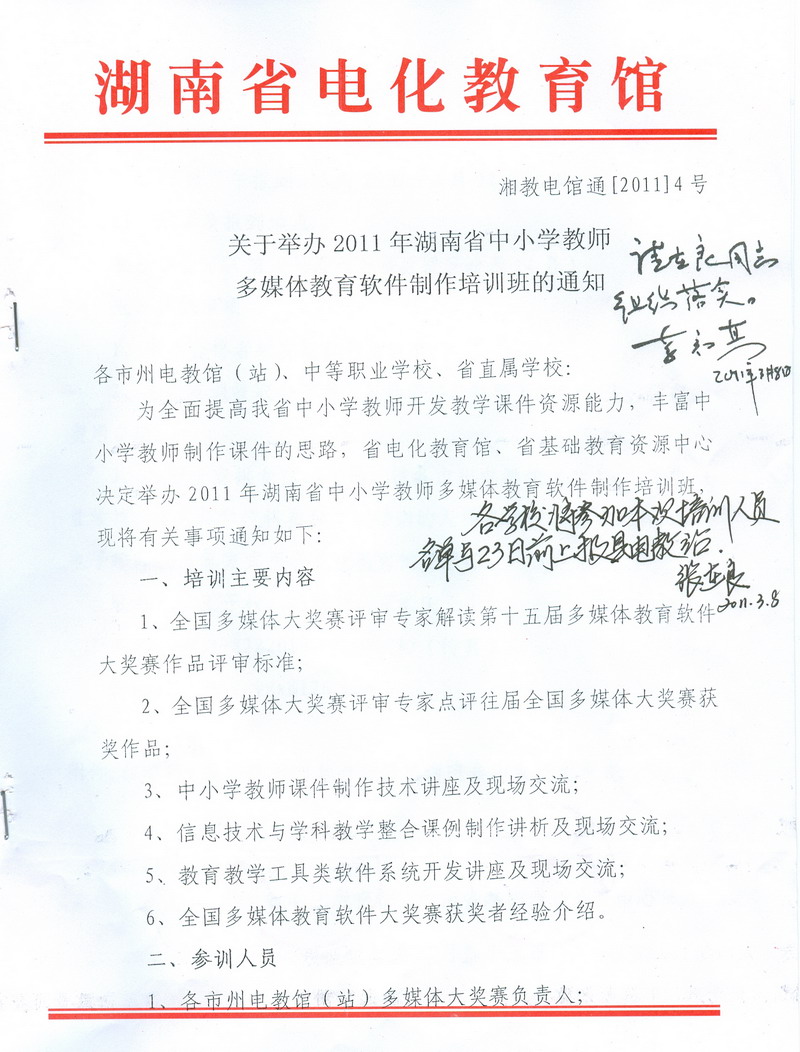 湖南省电化教育馆
湘教电馆通[2011]4号
关于举办 2011 年湖南省中小学教师
多媒体教育软件制作培训班的通知
请在良同志
组织落实。
2011年3月8日
各市州电教馆（站）、中等职业学校、省直属学校：
为全面提高我省中小学教师开发教学课件资源能力，丰富中
小学教师制作课件的思路，省电化教育馆、省基础教育资源中心
决定举办 2011 年湖南省中小学教师多媒体教育软件制作培训班，
现将有关事项通知如下：
各学校将参加本次培训人员
名单与23日前上报县电教站.
张在良
2011.3.8
一、培训主要内容
1、全国多媒体大奖赛评审专家解读第十五届多媒体教育软件
大奖赛作品评审标准；
2、全国多媒体大奖赛评审专家点评往届全国多媒体大奖赛获
奖作品；
3、中小学教师课件制作技术讲座及现场交流；
4、信息技术与学科教学整合课例制作讲析及现场交流；
5、教育教学工具类软件系统开发讲座及现场交流；
6、全国多媒体教育软件大奖赛获奖者经验介绍。
二、参训人员
1、各市州电教馆（站）多媒体大奖赛负责人；